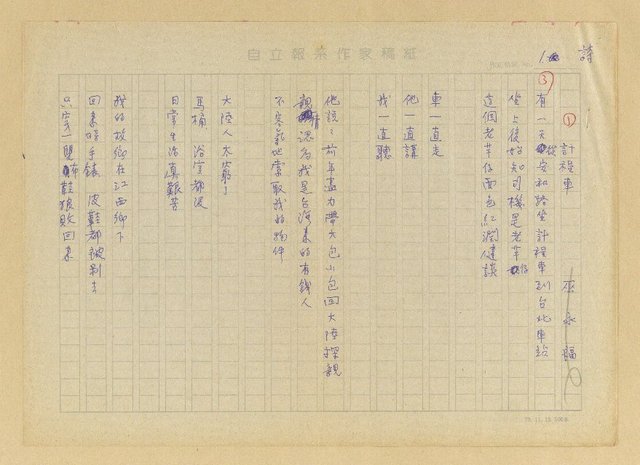 自立報系作家稿紙
詩
③
① 計程車 巫永福
有一天從安和路坐計程車到台北車站
坐上後始知司機是老芋仔
這個老芋仔面色紅潤健談
車一直走
他一直講
我一直聽
他說：前年盡力帶大包小包回大陸探親
親情認為我是台灣來的有錢人
不客氣地索取我的物件
大陸人太窮了
馬桶 浴室都沒
日常生活真艱苦
我的故鄉在江西鄉下
回來時手錶 皮鞋都被剝去
只穿一雙布鞋狼敗回來